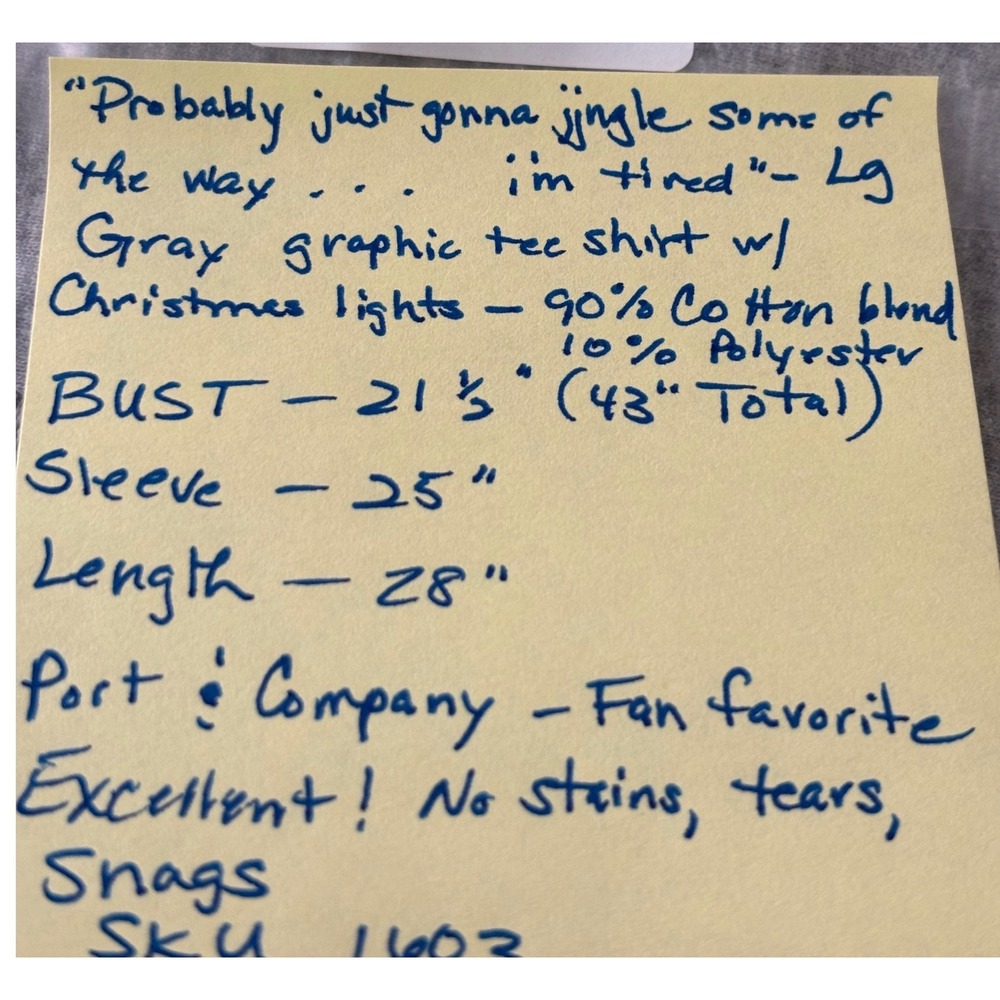 "Probably just gonna jingle some of
the way . . . i'm tired" - Lg
Gray graphic tee shirt w/
Christmas lights - 90% Cotton blend
10% Polyester
BUST - 21 ½" (43" Total)
Sleeve - 25"
Length - 28"
Port & Company - Fan favorite
Excellent! No stains, tears,
Snags
SKU 1603